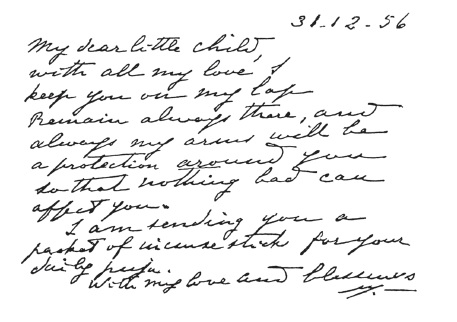 31-12-56
My dear little child,
with all my love I
keep you on my lap
Remain always there, and
always my arms will be
a protection around you
so that nothing bad can
affect you.
I am sending you a
packet of incense stick for your
daily puja.
With my love and blessings